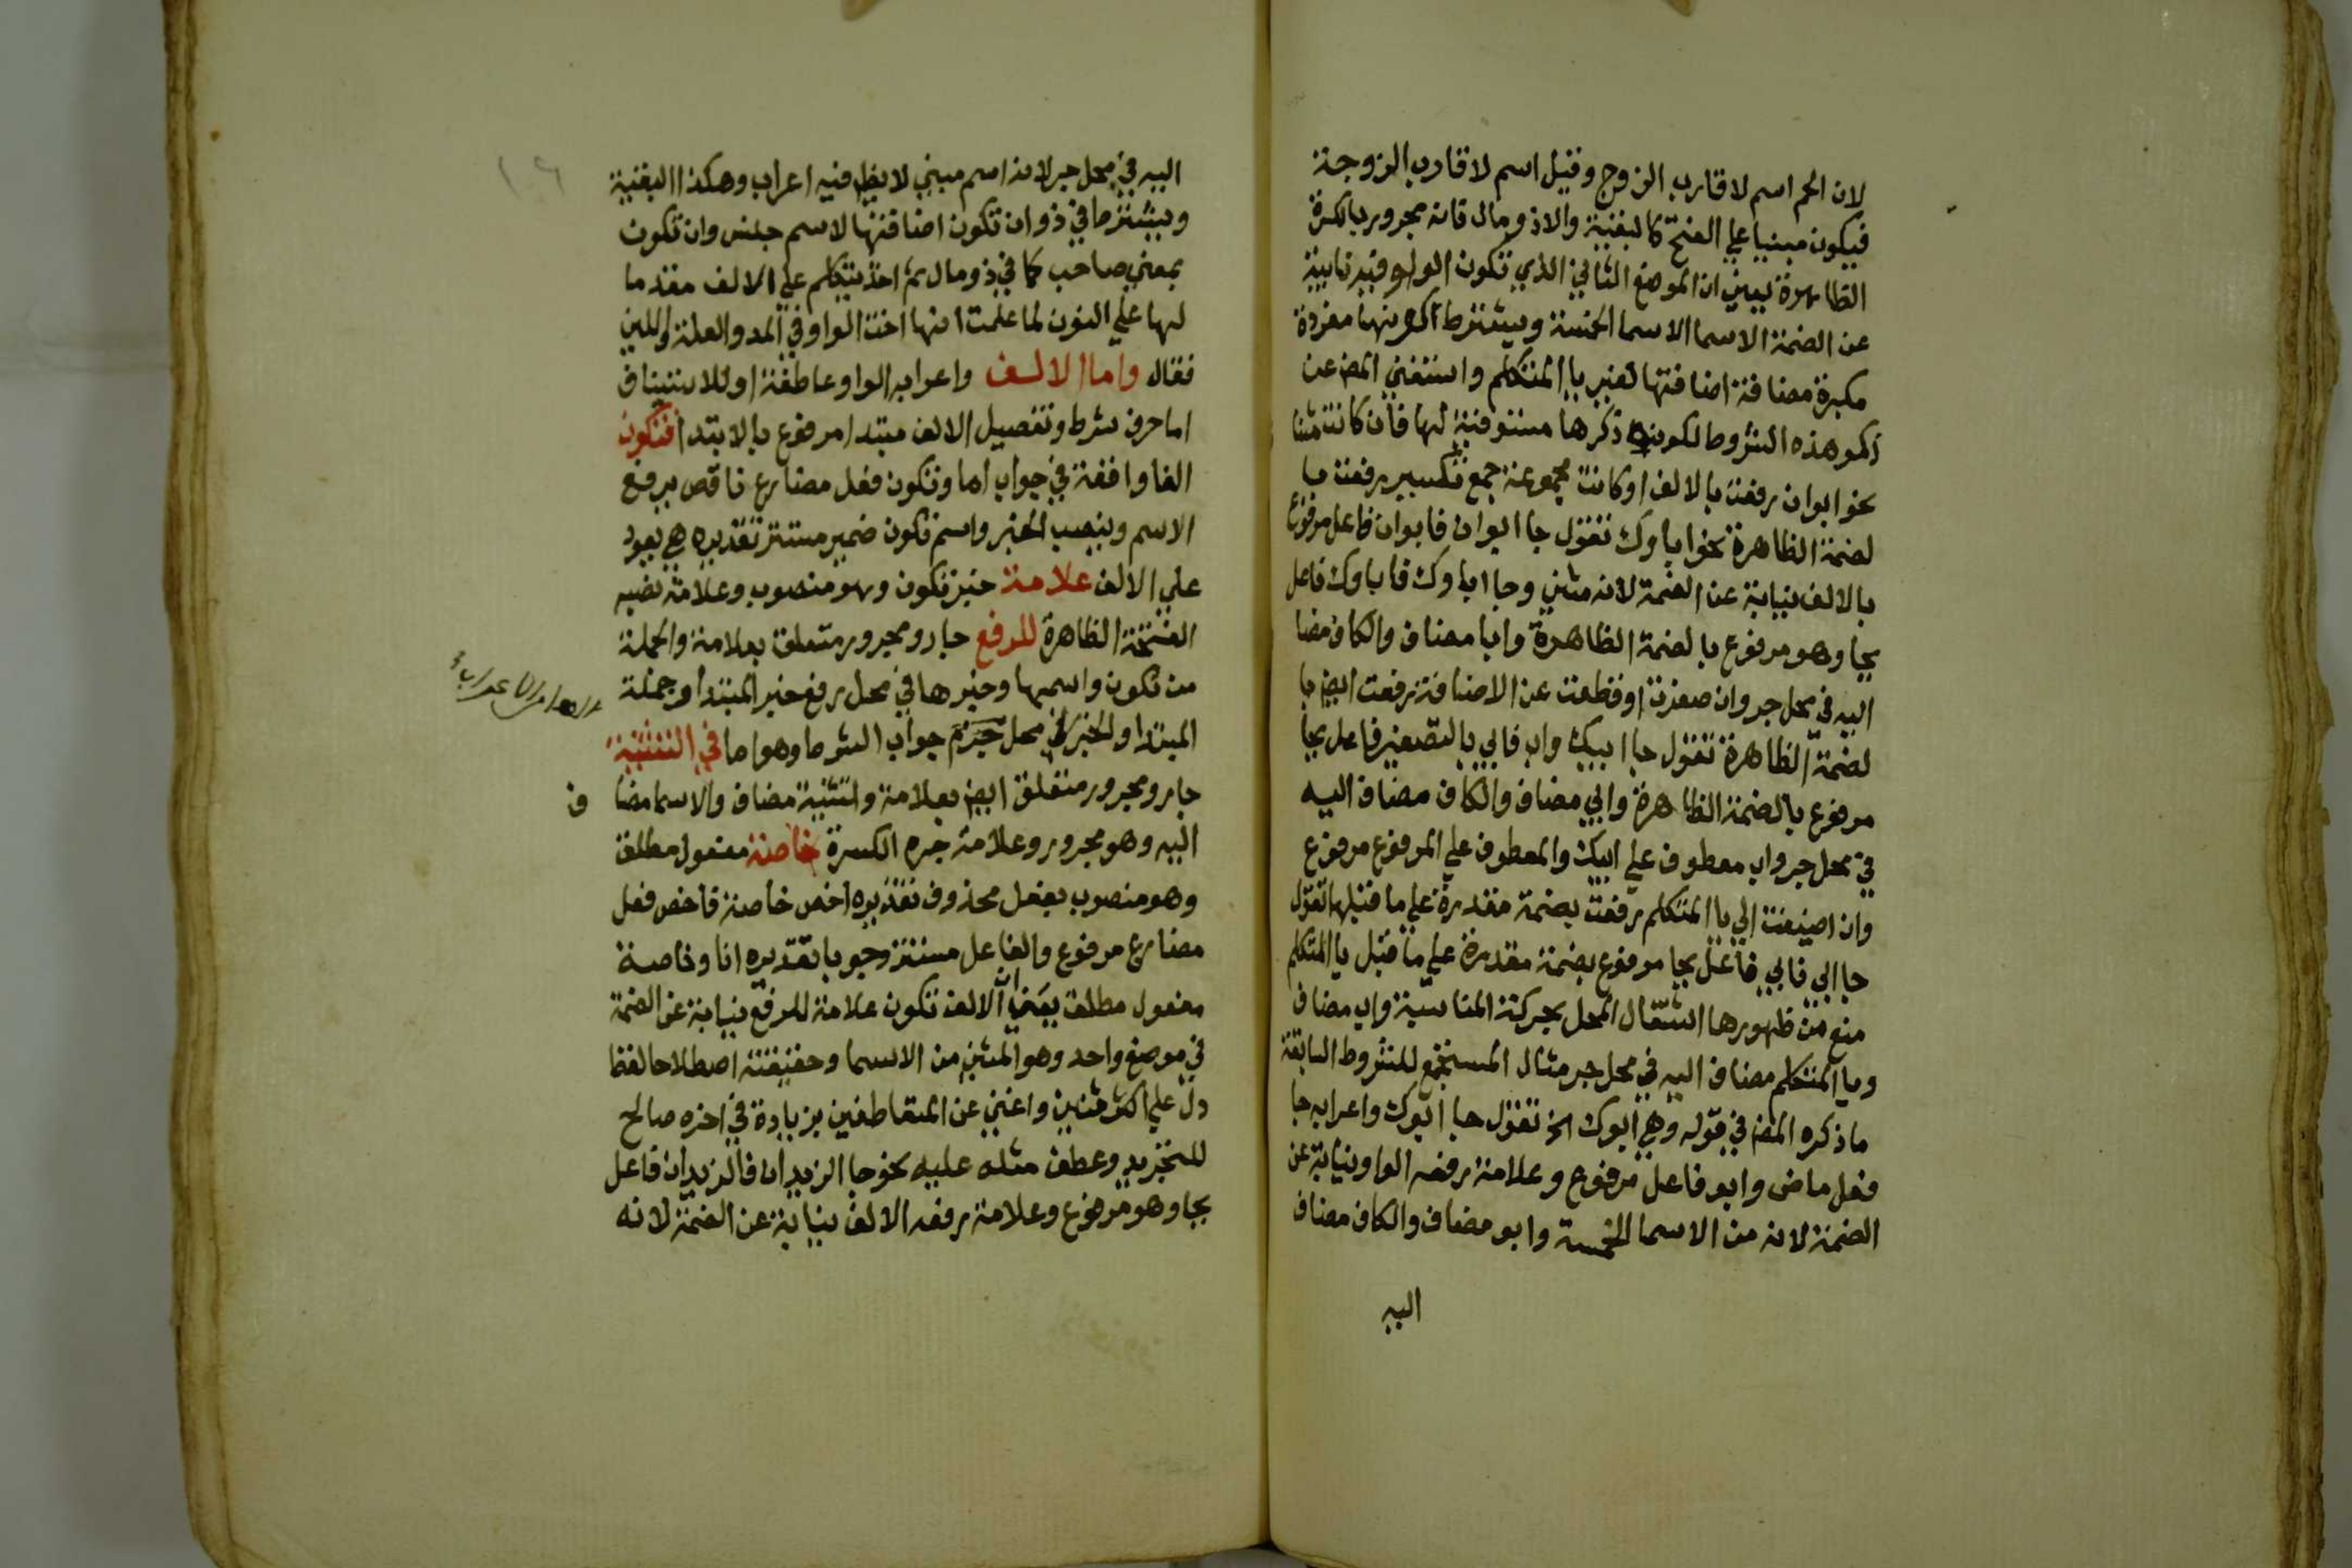 لان الحم اسم لاقارب الزوج وقيل اسم لاقارب الزوجة
فيكون مبنيا علي الفتح كالبقية والاذو مال فانه مجرور بالكسرة
الظاهرة يعني ان الموضع الثاني الذي تكون الواو فيه نايبة
عن الضمة الاسما الاسما الخمسة ويشترط كونها مفردة
مكبرة مضافة اضافتها لغير يا المتكلم واستغني المص عن
ذكر هذه الشروط لكونه ذكرها مستوفية لها فان كانت مثنا
نحو ابوان رفعت بالالف او كانت مجموعة جمع تكسير رفعت با
لضمة الظاهرة نحو اباوك تقول جا ابوان فابوان فاعل مرفوع
بالالف نيابة عن الضمة لانه مثني وجا اباوك فاباوك فاعل
بجا وهو مرفوع بالضمة الظاهرة وابا مضاف والكاف مضا
اليه في محل جر وان صغرت او قطعت عن الاضافة رفعت ايض با
لضمة الظاهرة تقول جا ابيك واب فابي بالتصغير فاعل بجا
مرفوع بالضمة الظاهرة وابي مضاف والكاف مضاف اليه
في محل جر واب معطوف علي ابيك والمعطوف علي المرفوع مرفوع
وان اضيفت الي يا المتكلم رفعت بضمة مقدرة علي ما قبلها تقول
جا ابي فابي فاعل بجا مرفوع بضمة مقدرة علي ما قبل يا المتكلم
منع من ظهورها اشتغال المحل بحركة المناسبة واب مضاف
ويا المتكلم مضاف اليه في محل جر مثال المستجمع للشروط السابقة
ما ذكره المص في قوله وهي ابوك الخ تقول جا ابوك واعرابه جا
فعل ماض وابو فاعل مرفوع وعلامة رفعه الواو نيابة عن
الضمة لانه من الاسما الخمسة وابو مضاف والكاف مضاف
اليه
١٠٦
اليه في محل جر لانه اسم مبني لا يظهر فيه اعراب وهكذا البقية
ويشترط في ذو ان تكون اضافتها لاسم جنس وان تكون
بمعني صاحب كما في ذو مال ثم اخذ يتكلم علي الالف مقدما
لها علي النون لما علمت انها اخت الواو في المد والعلة واللين
فقال واما الالف واعرابه الواو عاطفة او للاستيناف
اما حرف شرط وتفصيل الالف مبتدا مرفوع بالابتدا فتكون
الفا واقعة في جواب اما وتكون فعل مضارع ناقص يرفع
الاسم وينصب الخبر واسم تكون ضمير مستتر تقديره هي يعود
علي الالف علامة خبر تكون وهو منصوب وعلامة نصبه
الفتحة الظاهرة للرفع جار ومجرور متعلق بعلامة والجملة
من تكون واسمها وخبرها في محل رفع خبر المبتدا وجملة
المبتدا والخبر في محل جزم جواب الشرط وهو اما في التثنية
جار ومجرور متعلق ايض بعلامة وتثنية مضاف والاسما مضا ف
اليه وهو مجرور وعلامة جره الكسرة خاصة مفعول مطلق
وهو منصوب بفعل محذوف تقديره اخص خاصة فاخص فعل
مضارع مرفوع والفاعل مستتر وجوبا تقديره انا وخاصة
مفعول مطلق يعني ان الالف تكون علامة للرفع نيابة عن الضمة
في موضع واحد وهو المثني من الاسما وحقيقته اصطلاحا لفظ
دل علي اكثر اثنين واغني عن المتعاطفين بزيادة في اخره صالح
للتجريد وعطف مثله عليه نحو جا الزيدان فالزيدان فاعل
بجا وهو مرفوع وعلامة رفعه الالف نيابة عن الضمة لانه